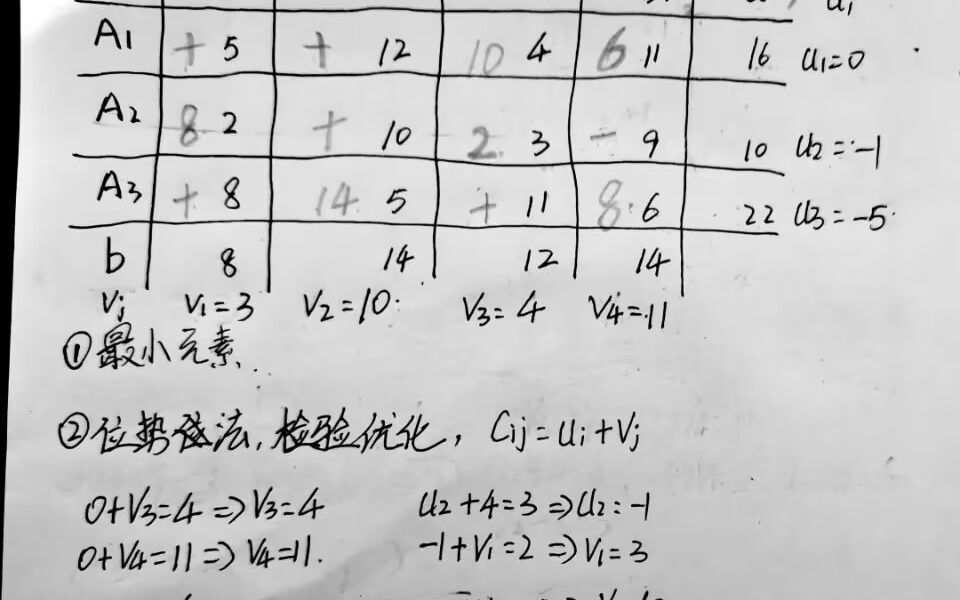 A1 + 5 + 12 10 4 6 11 16 u1=0
A2 8 2 + 10 2 3 - 9 10 u2=-1
A3 + 8 14 5 + 11 8 6 22 u3=-5
b 8 14 12 14
Vj V1=3 V2=10 V3=4 V4=11
①最小元素
②位势法,检验优化, Cij=ui+Vj
0+V3=4=>V3=4 u2+4=3=>u2=-1
0+V4=11=>V4=11. -1+V1=2=>V1=3